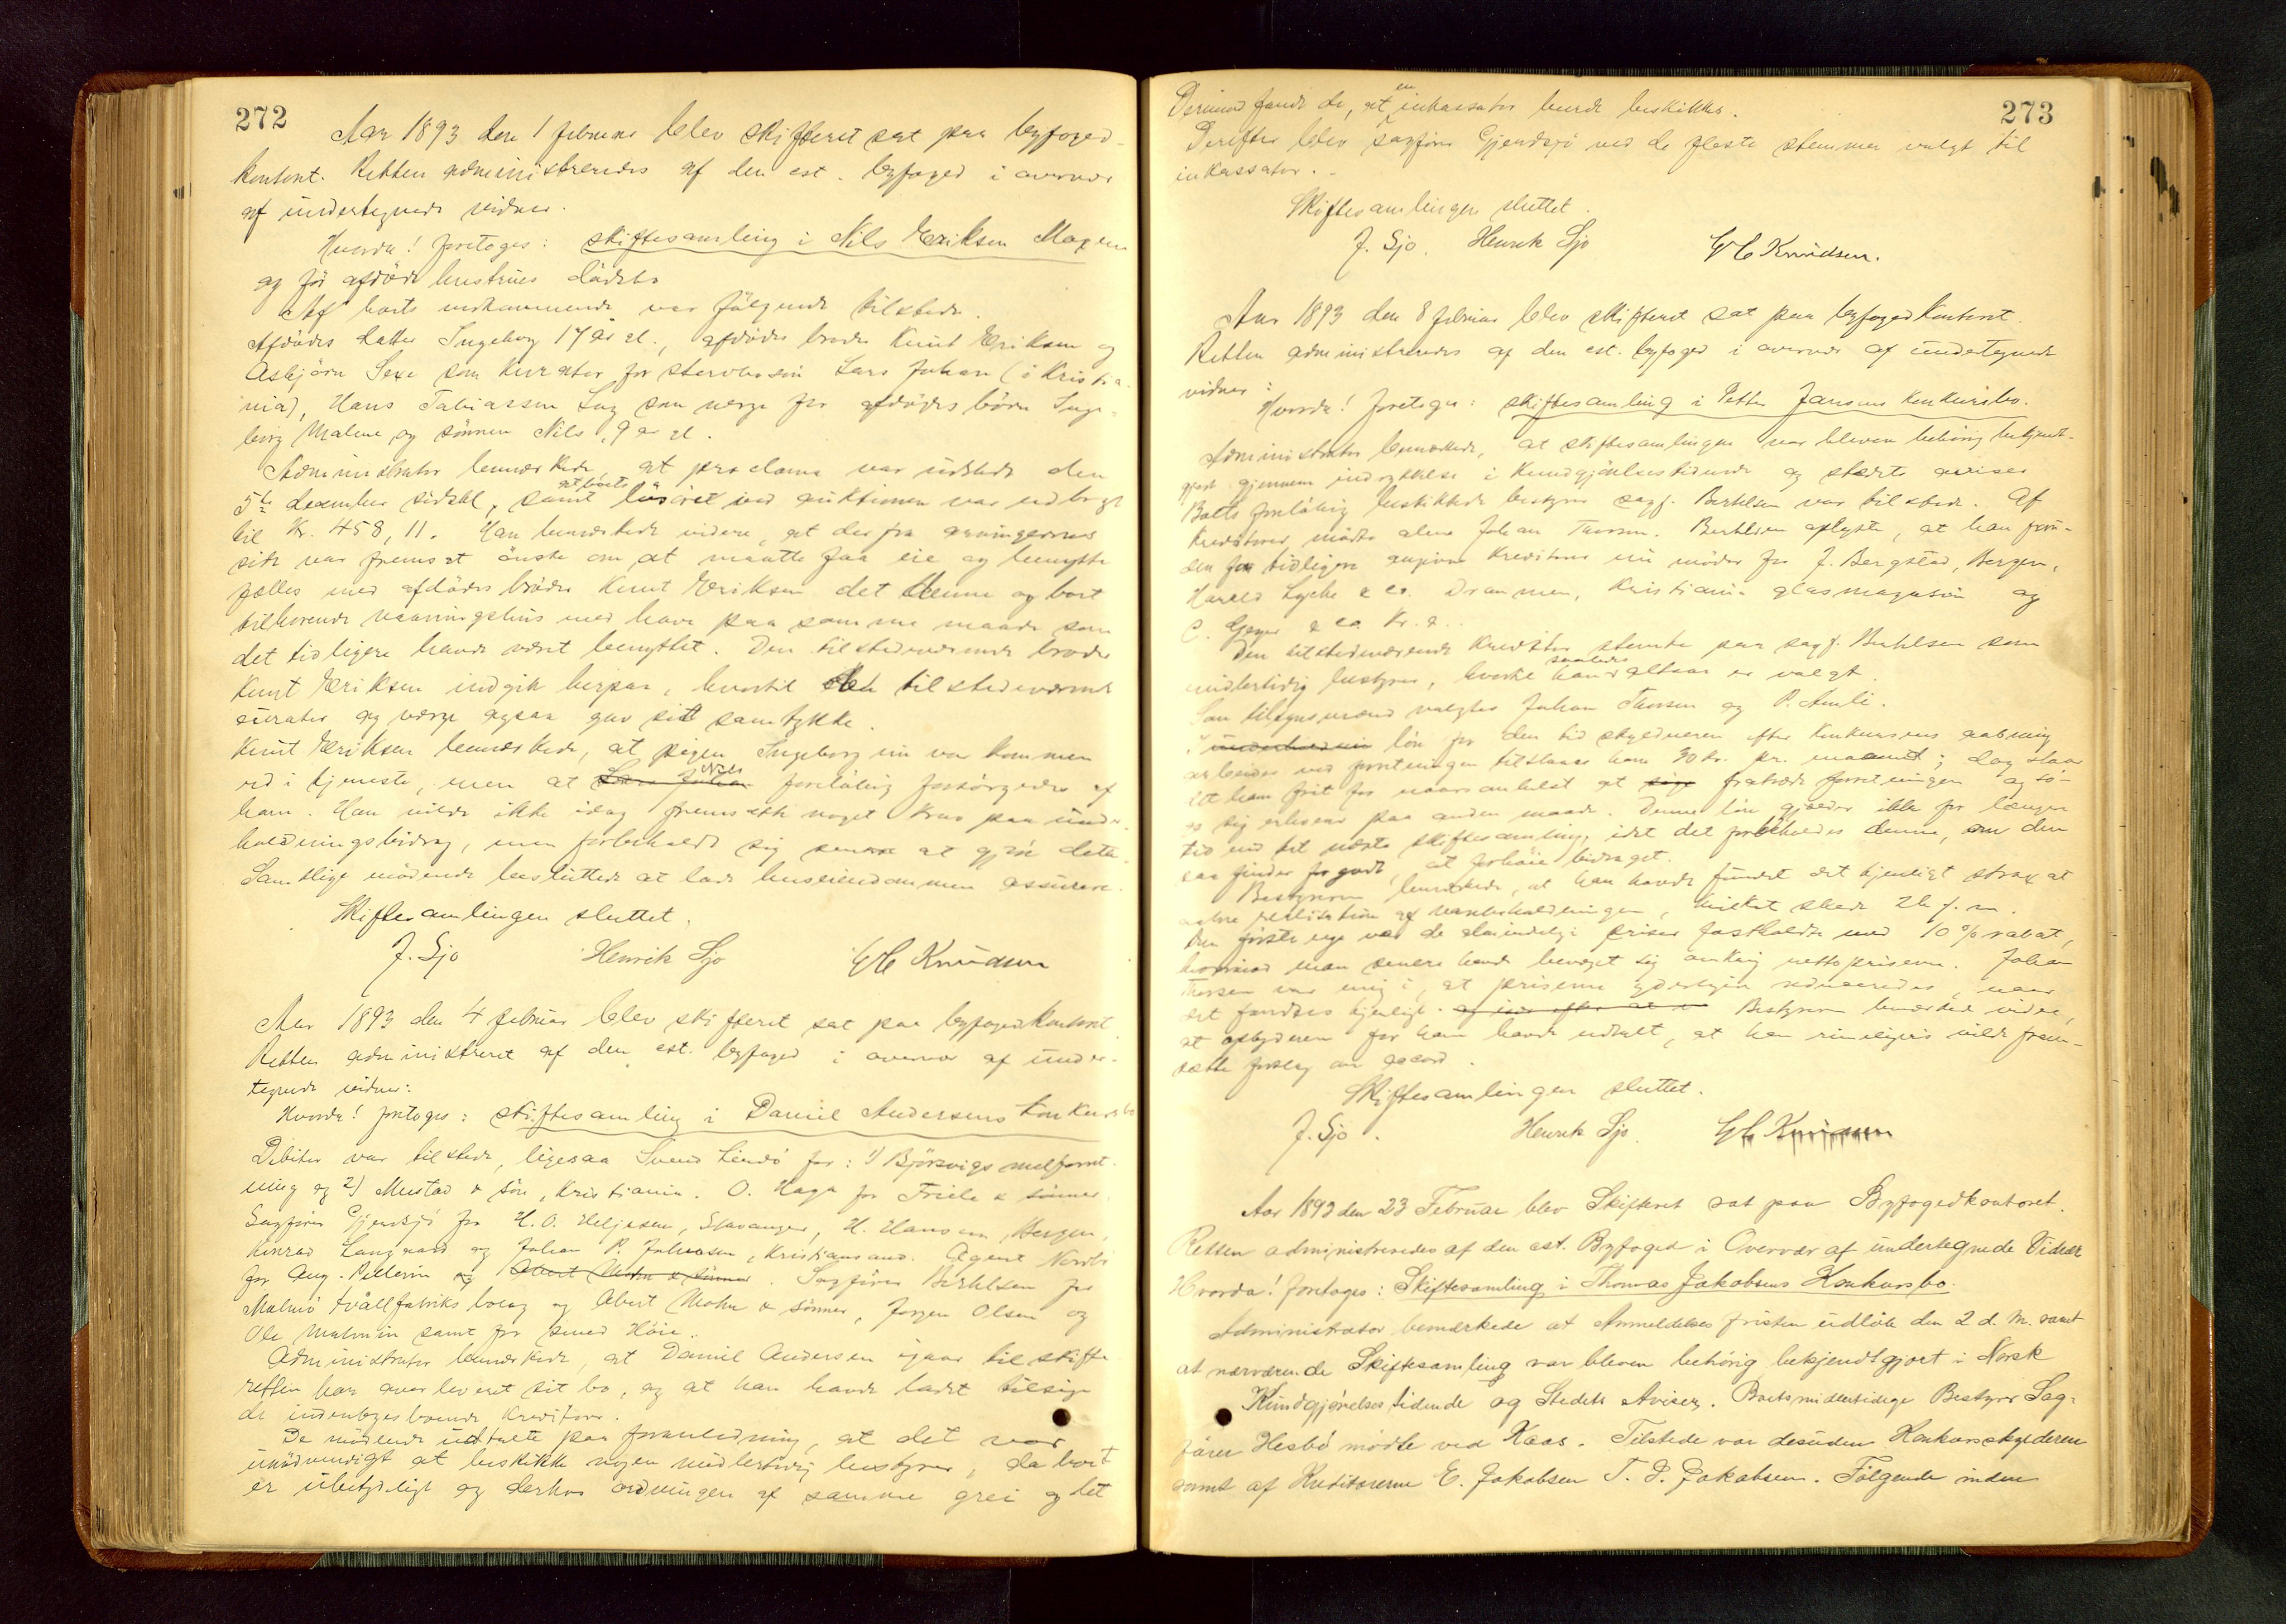 272
Aar 1893 den 1 februar blev skifteret sat paa byfoged-
kontoret. Retten administreredes af den est. byfoged i overvær
af undertegnede vidner.
Hvorda! foretoges: skiftesamling i Nils Eriksen
og før afdøde hustrues dødsbo
Af boets vedkommende var følgende tilstede.
Afdødes datter Ingeborg 17 år gl., afdødes broder Knut Eriksen og
Asbjørn Sexe som kurator for stervbosøn Lars Johan (i Kristia-
nia), Hans Tobiassen som verge for afdødes børn Inge-
borg Malene og sønnen Nils, 9 år gl.
Administrator bemærkede, at proclama var udstedt den
5te december sidstl, samt at boets løsøret ved auktionen var udbragt
til Kr. 458,11. Han bemærkede videre, at der fra arvingernes
side var fremsat ønske om at maatte faa eie og benytte
fælles med afdødes broder Knut Eriksen det denne og boet
tilhørende vaaningshus med have paa samme maade som
det tidligere havde været benyttet. Den tilstedeværende broder
Knut Eriksen indgik herpaa, hvortil de tilstedeværende
curator og værge ogsaa gav sit samtykke.
Knut Eriksen bemærkede, at pigen Ingeborg nu var kommen
ud i tjeneste, men at Lars Johan Nils foreløbig forsørgedes af
ham. Han vilde ikke idag fremsætte noget krav paa under-
holdningsbidrag, men forbeholdt sig senere at gjøre dette.
Samtlige mødende besluttede at lade huseiendommen assurere.
Skiftesamlingen sluttet.
J. Sjo Henrik Sjo Knudsen
Aar 1893 den 4 februar blev skifteret sat paa byfogedkontoret
Retten administreret af den est. byfoged i overvær af under-
tegnede vidner:
Hvorda! foretoges: skiftesamling i Daniel Andersens konkursbo
Debitor var tilstede, ligesaa Svend Lindø for: 1) Bjørsvigs melforret-
ning og 2) Mustad & søn, Kristiania. O. Haga for Friele & sønner.
Sagfører Gjendsjø for H. O. Heljesen, Stavanger, H. Hansen, Bergen,
Konrad Langaard og Johan P. Johnsen, Kristiansand. Agent
for Aug. Pellerin og Abert Mohn & sønner. Sagfører Berthelsen for
Malmö tvållfabriks bolag og Abert Mohn & sønner, Jørgen Olsen og
Ole Malmin samt for smed Høie.
Administrator bemærkede, at Daniel Andersen igaar til skifte-
retten har overleveret sit bo, og at han havde ladet tilsige
de indenbysboende kreditorer.
De mødende udtalte paa foranledning, at det var
unødvendigt at beskikke nogen midlertidig bestyrer, da boet
er ubetydeligt og derhos ordningen af samme grei og let
273
Derimod fandt de, at en inkassator burde beskikkes.
Derefter blev sagfører Gjendsjø ved de fleste stemmer valgt til
inkassator.
Skiftesamlingen sluttet.
J. Sjo. Henrik Sjo Knudsen.
Aar 1893 den 8 februar blev skifteret sat paa byfogedkontoret.
Retten administreredes af den est. byfoged i overvær af undertegnede
vidner:
Hvorda! foretoges: skiftesamling i Petter Jansens konkursbo.
Administrator bemærkede, at skiftesamlingen var bleven behørig bekjendt-
gjort gjennem indrykkelse i Kundgjørelsestidende og stedets aviser
Boets foreløbig beskikkede bestyrer sagf. Berthelsen var tilstede. Af
kreditorer mødte alene Johan Thorsen. Berthelsen oplyste, at han foru-
den for tidligere angivne kreditorer nu møder for J. Bergstad, Bergen,
Harald Lyche & co. Drammen, Kristiania glasmagasin og
C. Geyer & co. Kr.a.
Den tilstedeværende kreditor stemte paa sagf. Berthelsen som
midlertidig bestyrer, hvorke han saaledes altsaa er valgt.
Som tilsynsmænd valgtes Johan Thorsen og P. Amli.
I løn for den tid skyldneren efter konkursens aabning
arbeider ved forretningen tilstaaes ham 30 kr. pr. maaned; dog staar
det ham frit for naarsomhelst at fratræde forretningen og sø-
ge sig erhverv paa anden maade. Denne løn gjælder ikke for længere
tid end til næste skiftesamling, idet det forbeholdes denne, om den
saa finder for godt, at forhøie bidraget.
Bestyreren bemærkede, at han havde fundet det tjenligt strax at
aabne realisation af varebeholdningen, hvilket skede 26 f. m.
Den første uge var de almindelige priser fastholdte med 10 % rabat,
hvorimod man senere havde bevæget sig omkring nettopriserne. Johan
Thorsen var enig i, at priserne yderligere reduceredes, naar
det fandtes tjenligt. Bestyreren bemærked videre,
at opbyderen for ham havde udtalt, at han rimeligvis vilde frem-
sætte forslag om accord.
Skiftesamlingen sluttet.
J. Sjo. Henrik Sjo. Knudsen
Aar 1893 den 23 Februar blev Skifteret sat paa Byfogedkontoret.
Retten administreredes af den est. Byfoged i Overvær af undertegnede Vidner
Hvorda! foretoges: Skiftesamling i Thomas Jakobsens Konkursbo.
Administrator bemærkede at Anmeldelsesfristen udløb den 2 d. M. samt
at nærværende Skiftesamling var bleven behørig bekjendtgjort i Norsk
Kundgjørelsestidende og Stedets Aviser. Boets midlertidige Bestyrer Sag-
fører Hesbø mødte ved Kaas. Tilstede var desuden Konkursskyldneren
samt af Kreditorerne E. Jakobsen T. D. Jakobsen. Følgende inden